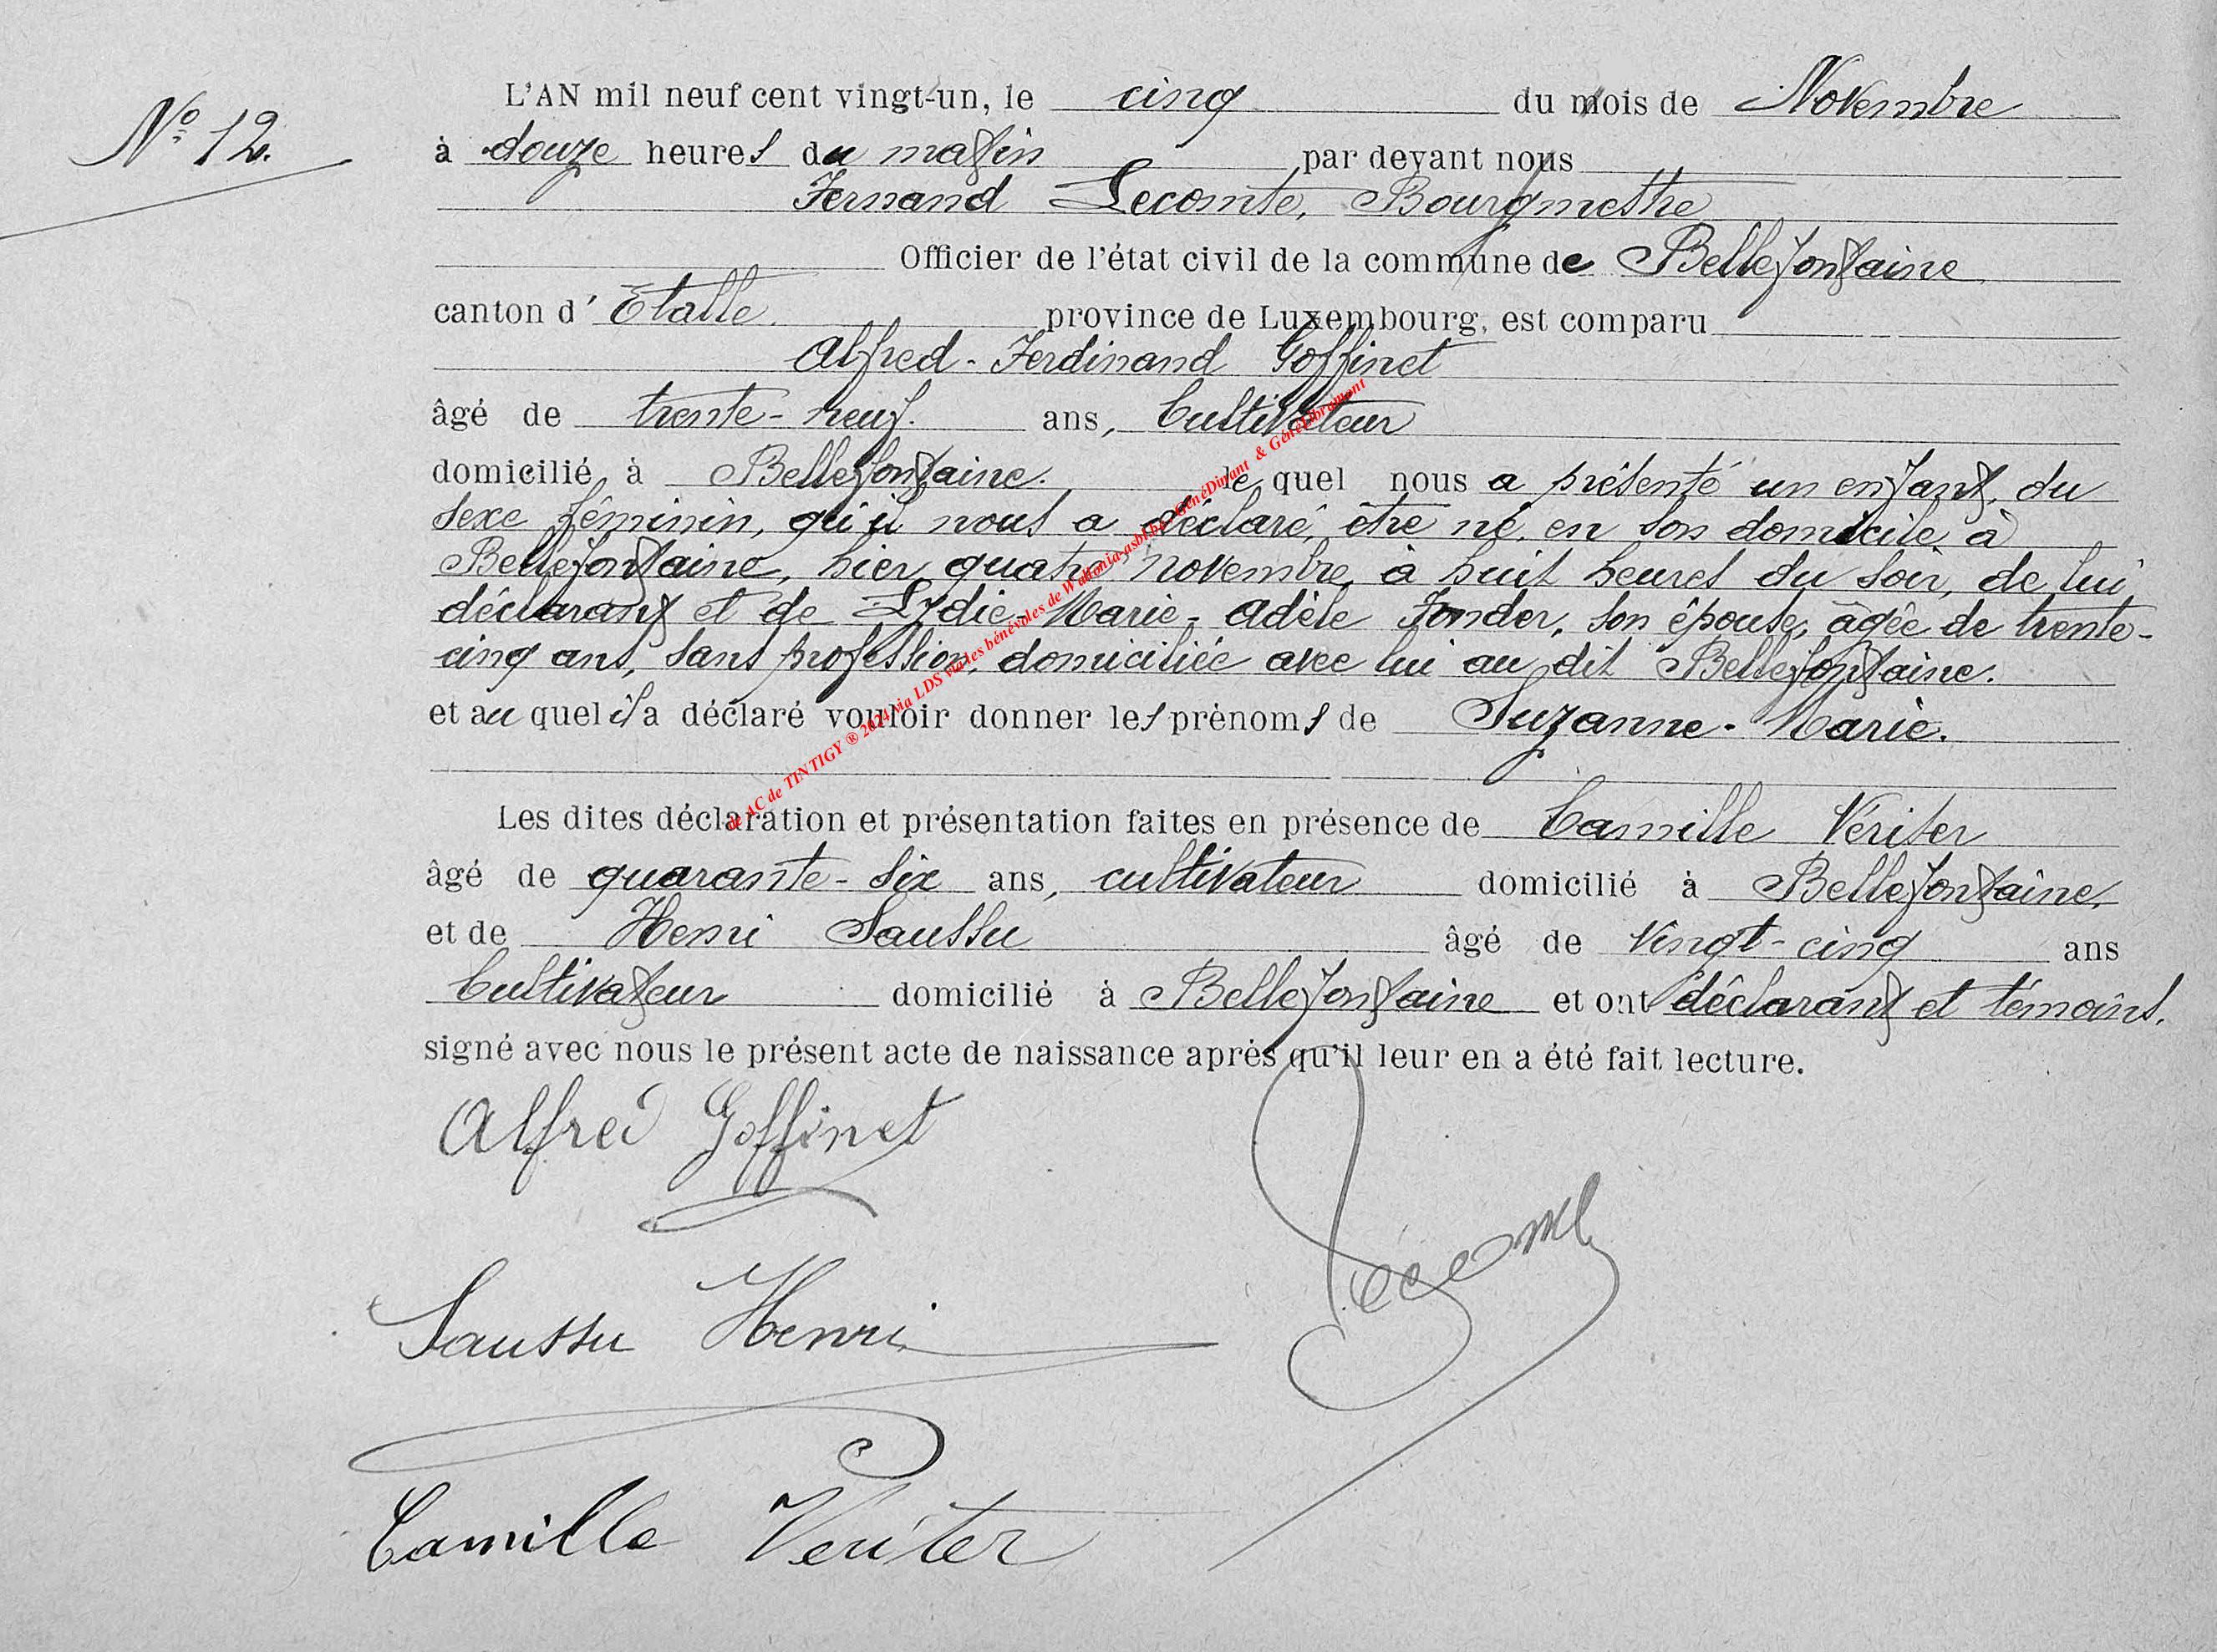 N° 12.
L'AN mil neuf cent vingt-un, le cinq du mois de Novembre
à douze heures du matin par devant nous
Fernand Lecomte, Bourgmestre
Officier de l'état civil de la commune de Bellefontaine
canton d' Etalle province de Luxembourg, est comparu
Alfred-Ferdinand Goffinet
âgé de trente-neuf ans, Cultivateur
domicilié à Bellefontaine. le quel nous a présenté un enfant, du
sexe féminin, qu'il nous a déclaré, être né, en son domicile à
Bellefontaine, hier quatre novembre, à huit heures du soir, de lui
déclarant et de Lydie-Marie-Adèle Fonder, son épouse, âgée de trente-
cinq ans, sans profession, domiciliée avec lui au dit Bellefontaine.
et au quel il a déclaré vouloir donner les prénoms de Suzanne-Marie.
Les dites déclaration et présentation faites en présence de Camille Veriter
âgé de quarante-six ans, cultivateur domicilié à Bellefontaine,
et de Henri Saussu âgé de vingt-cinq ans
Cultivateur domicilié à Bellefontaine et ont déclarant et témoins,
signé avec nous le présent acte de naissance après qu'il leur en a été fait lecture.
Alfred Goffinet
Lecomte
Saussu Henri
Camille Veriter
de AC de TINTIGY ® 2024 via LDS via les bénévoles de Wallonia-asbl.be - GénéDinant & GénéLibramont